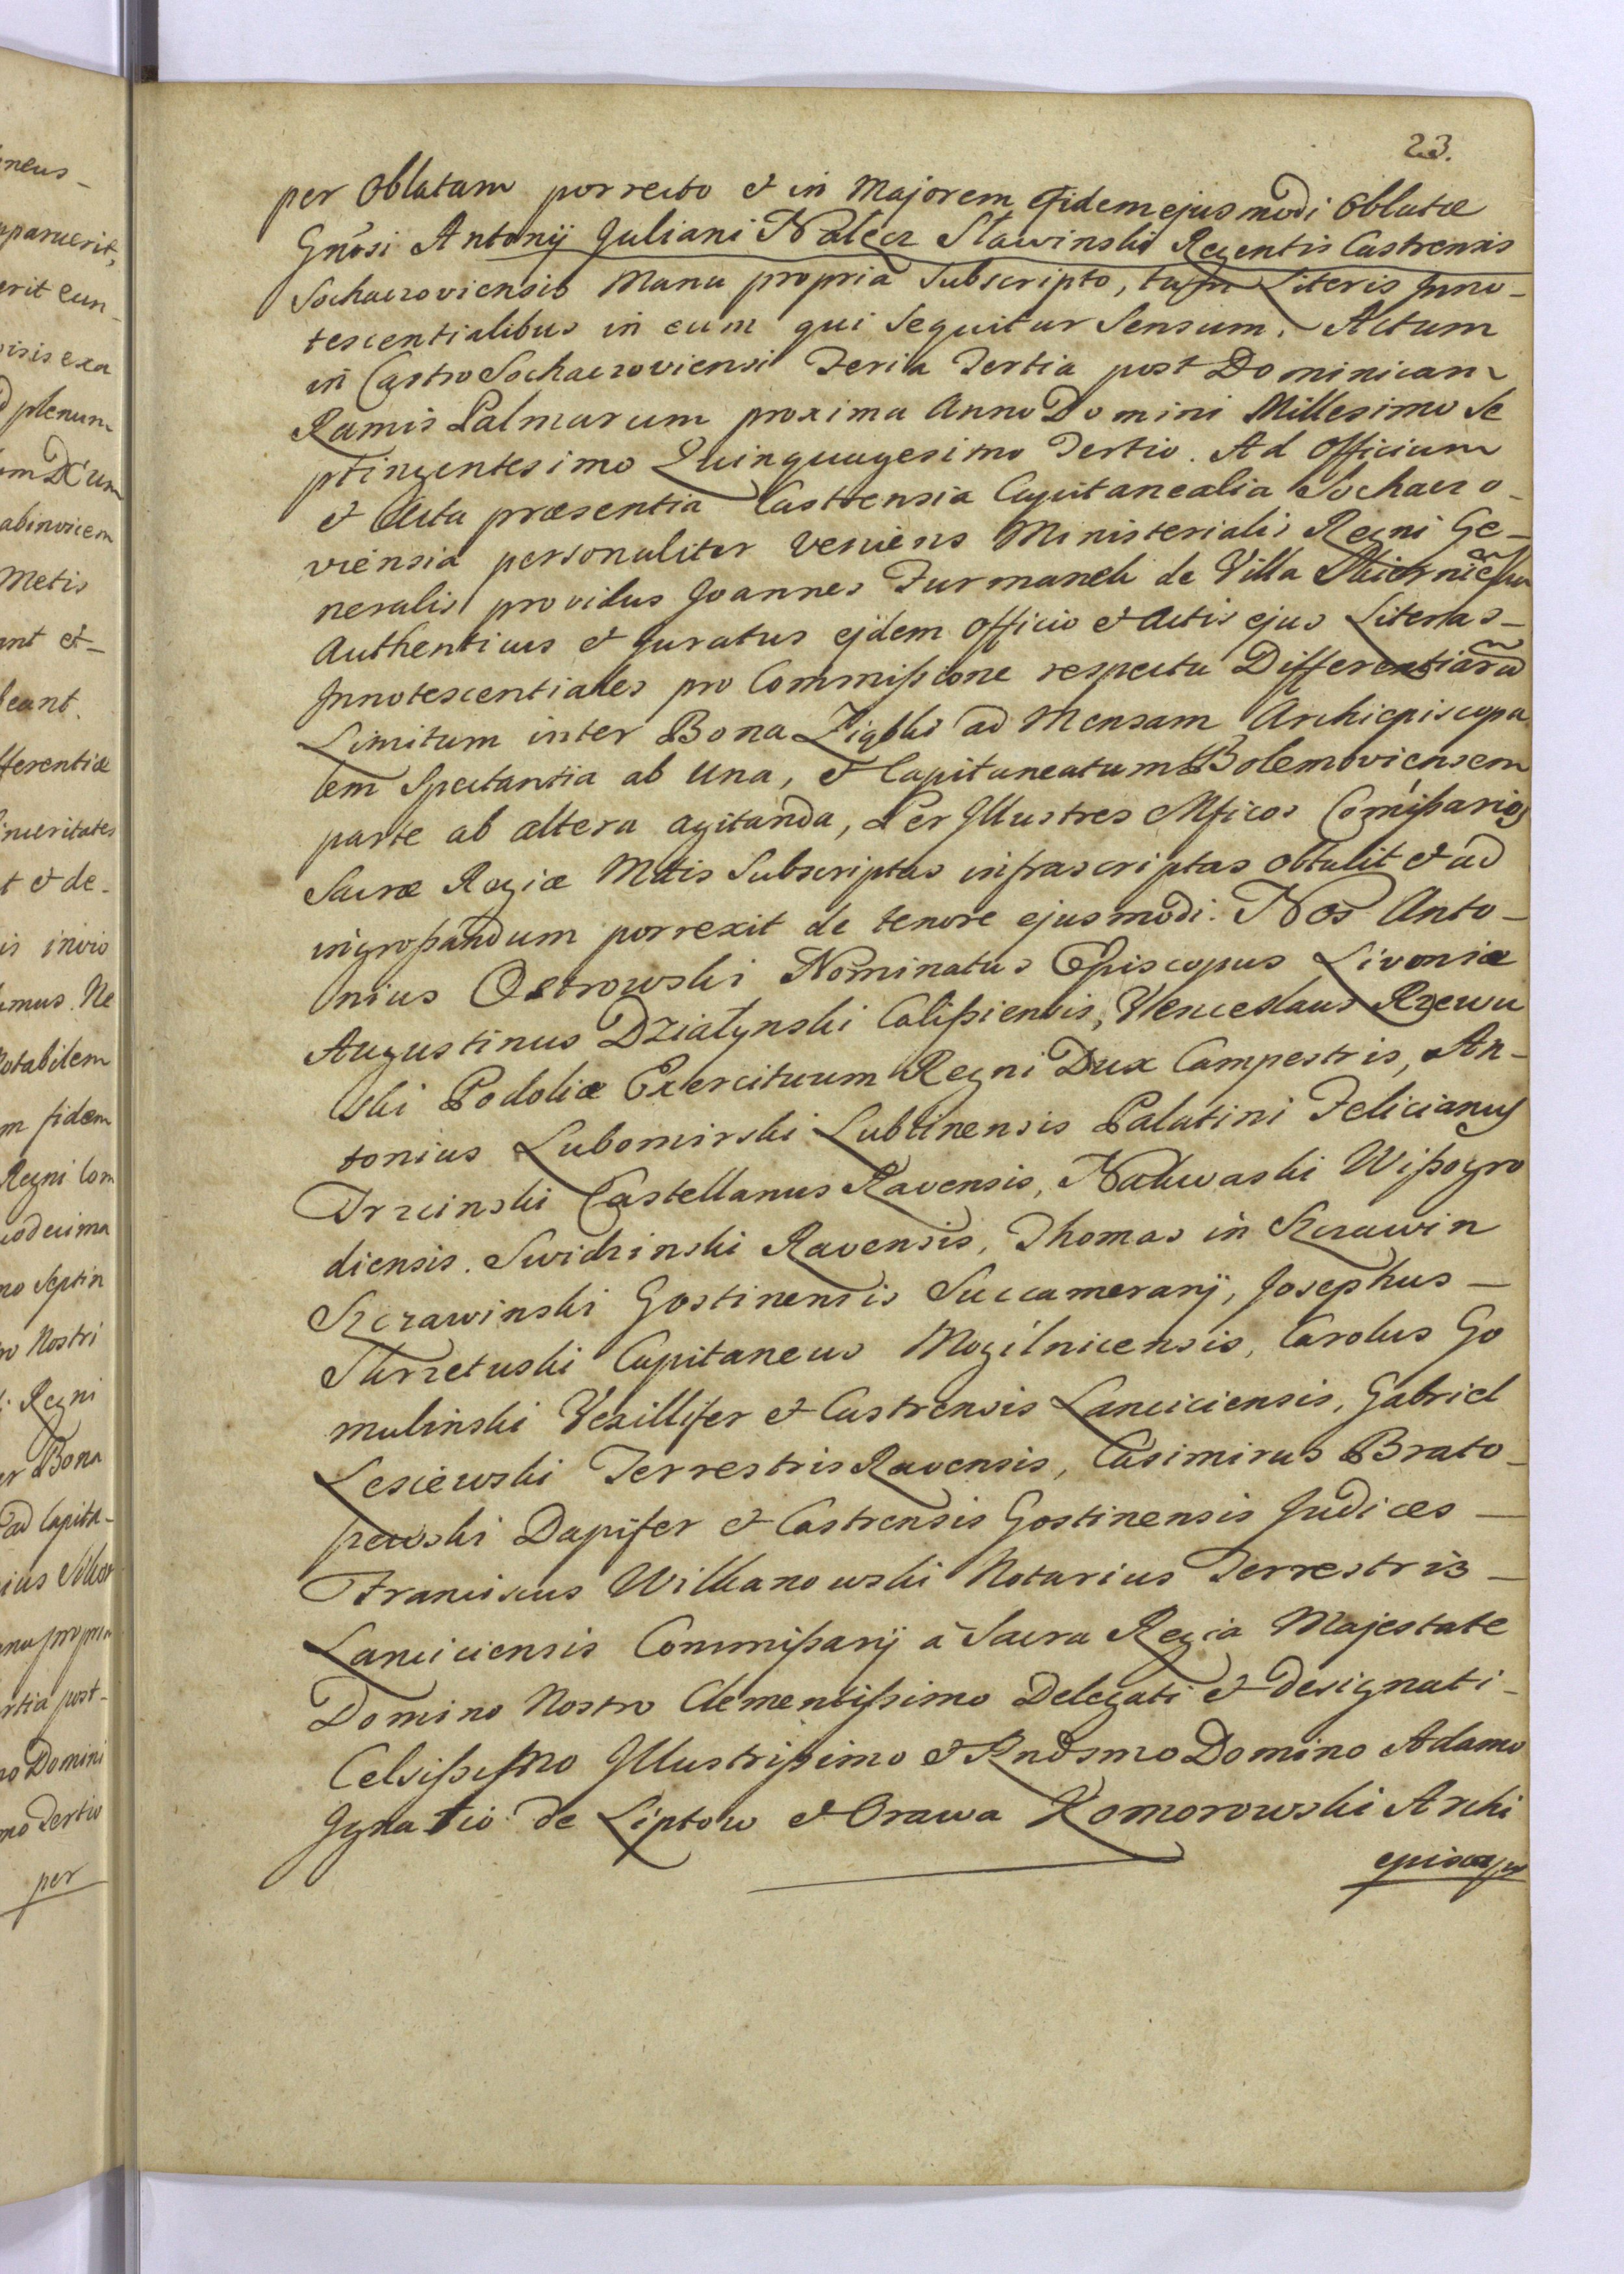 23.
per Oblatam porrecto et in Majorem fidem ejusmodi Oblatæ
Gnosi Antonij Juliani Nalecz Sławinski Regentis Castrensis
Sochaczoviensis Manu propria Subscripto, tum Literis Inno-
tescentialibus in eum qui Sequitur Sensum. Actum
in Castro Sochaczoviensi Feria Tertia post Dominicam
Ramis Palmarum proxima Anno Domini Millesimo Se
ptingentesimo Quinquagesimo Tertio. Ad Officium
et Acta præsentia Castrensia Capitanealia Sochaczo-
viensia personaliter veniens Ministerialis Regni Ge-
neralis providus Joannes Furmanek de Villa
Authenticus et Juratus ejdem Officio et Actis ejus Literas-
Innotescentiales pro Commißione respectu Differentiaru
Limitum inter Bona Zigłki ad Mensam Archiepiscopa
lem Spectantia ab Una, et Capitaneatum Bolemoviensem
parte ab altera agitanda, Per Illustres Mficos Comißarios
Sacræ Regiæ Mtis Subscriptas infrascriptas obtulit et ad
ingroßandum porrexit de tenore ejusmodi. Nos Anto-
nius Ostrowski Nominatus Episcopus Livoniæ
Augustinus Działynski Calißiensis, Venceslaus Rzewu
ski Podoliæ Exercituum Regni Dux Campestris, An-
tonius Lubomirski Lublinensis Palatini Felicianus
Trzcinski Castellanus Ravensis, Nakwaski Wißogro
diensis. Swidzinski Ravensis, Thomas in Szczawin
Szczawinski Gostinensis Succamerarij, Josephus-
Skrzetuski Capitaneus Mogilnicensis, Carolus Go
molinski Vexillifer et Castrensis Lanciciensis, Gabriel
Lesiewski Terrestris Ravensis, Casimirus Brato-
szewski Dapifer et Castrensis Gostinensis Judices-
Franciscus Wilkanowski Notarius Terrestris-
Lanciciensis Commißarij à Sacra Regia Majestate
Domino Nostro Clementißimo Delegati et designati-
Celsißimo Illustrißimo et Rndsmo Domino Adamo
Ignatio de Liptow et Orawa Komorowski Archi
episcopo